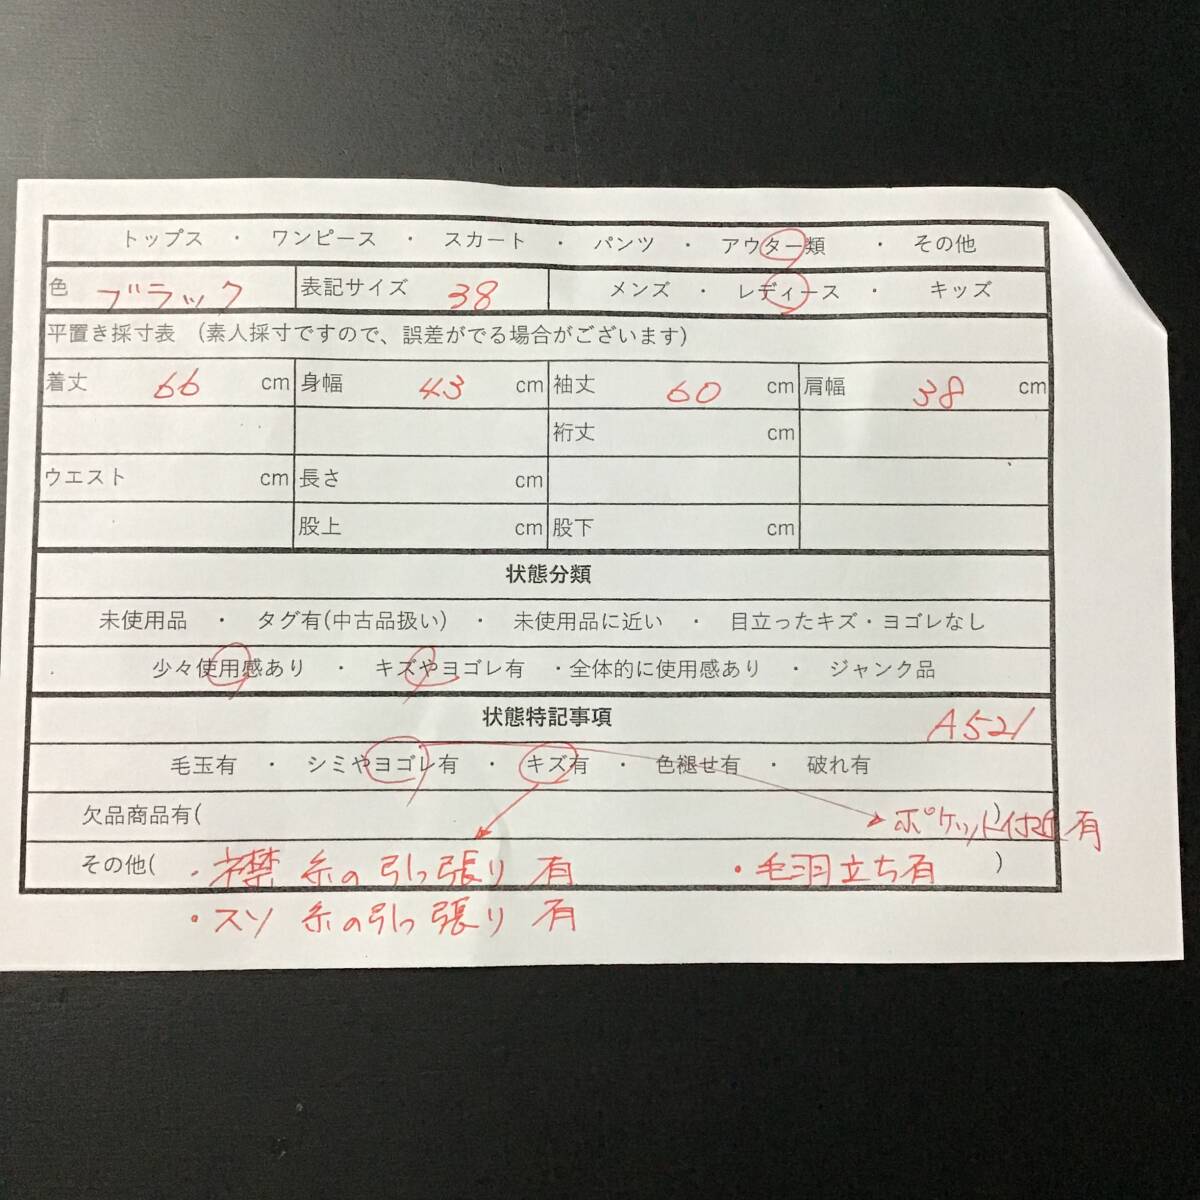 トップス ・ ワンピース ・ スカート ・ パンツ ・ アウター類 ・ その他
色 ブラック 表記サイズ 38 メンズ ・ レディース ・ キッズ
平置き採寸表 (素人採寸ですので、誤差がでる場合がございます)
着丈 66 cm 身幅 43 cm 袖丈 60 cm 肩幅 38 cm
裄丈 cm
ウエスト cm 長さ cm
股上 cm 股下 cm
状態分類
未使用品 ・ タグ有(中古品扱い) ・ 未使用品に近い ・ 目立ったキズ・ヨゴレなし
少々使用感あり ・ キズやヨゴレ有 ・全体的に使用感あり ・ ジャンク品
状態特記事項 A521
毛玉有 ・ シミやヨゴレ有 ・ キズ有 ・ 色褪せ有 ・ 破れ有
欠品商品有( ) ポケット付近有
その他( ・襟 糸の引っ張り 有 ・毛羽立ち有 )
・スソ 糸の引っ張り 有